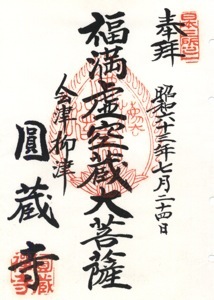 奉拜
昭和六十三年七月二十四日
福満虚空蔵大菩薩
会津柳津
圓蔵寺